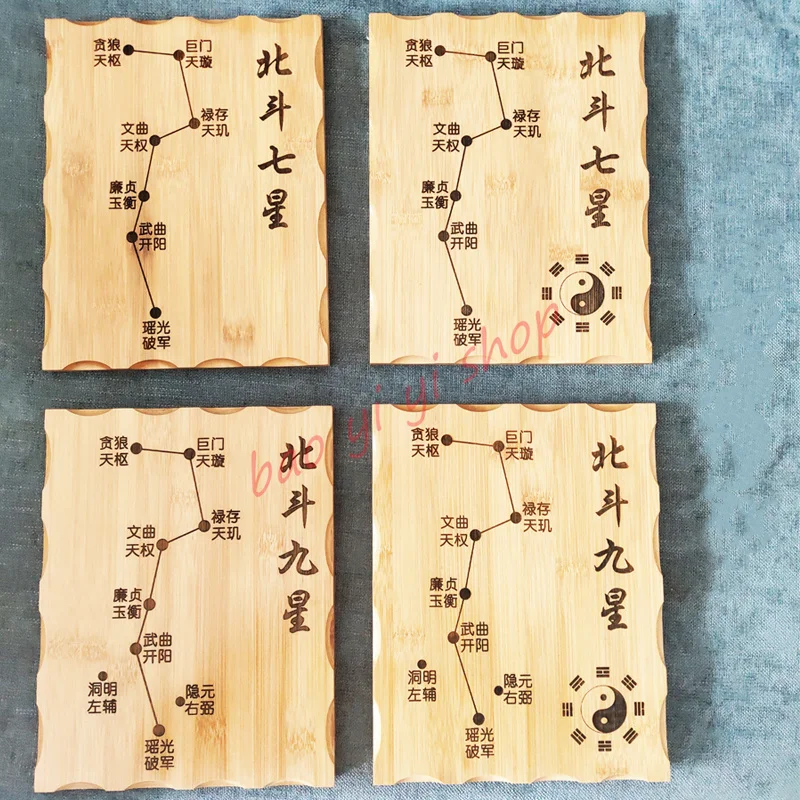 贪狼
天枢
巨门
天璇
禄存
天玑
文曲
天权
廉贞
玉衡
武曲
开阳
瑶光
破军
北斗七星
贪狼
天枢
巨门
天璇
禄存
天玑
文曲
天权
廉贞
玉衡
武曲
开阳
瑶光
破军
北斗七星
贪狼
天枢
巨门
天璇
禄存
天玑
文曲
天权
廉贞
玉衡
武曲
开阳
洞明
左辅
隐元
右弼
瑶光
破军
北斗九星
贪狼
天枢
巨门
天璇
禄存
天玑
文曲
天权
廉贞
玉衡
武曲
开阳
洞明
左辅
隐元
右弼
瑶光
破军
北斗九星
bao yi yi shop